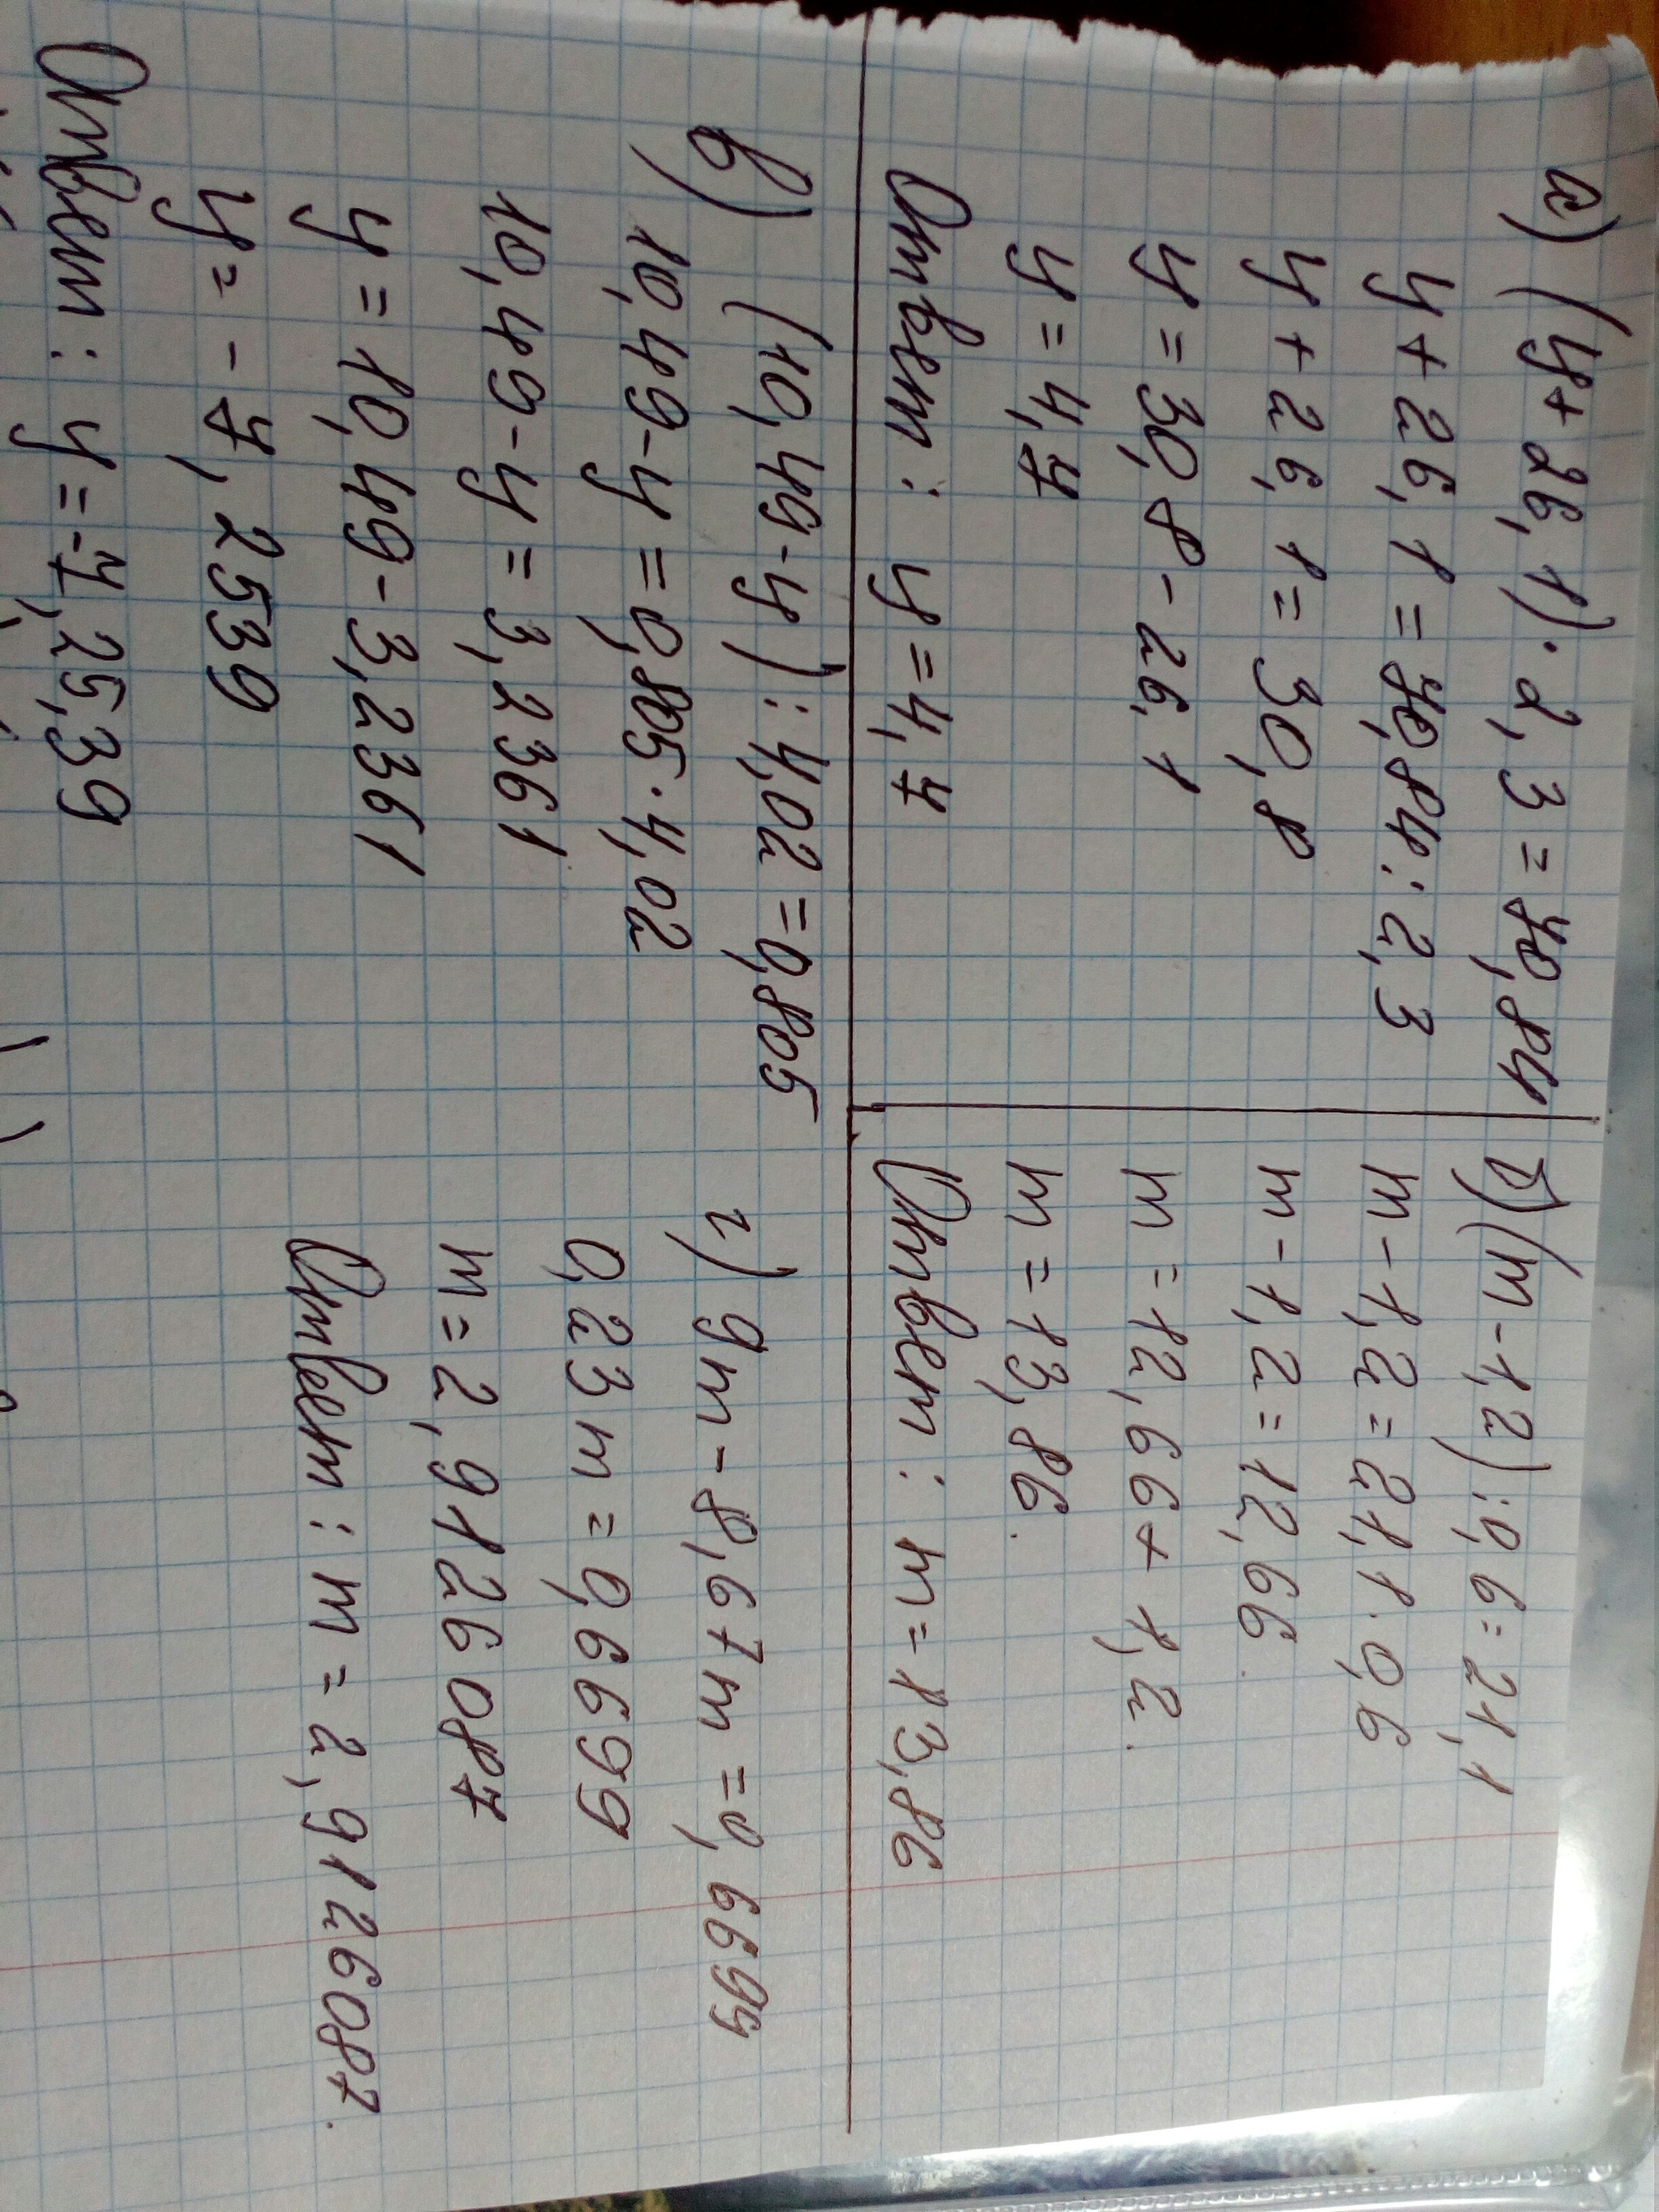 а) (y + 26,1) · 2,3 = 70,84
y + 26,1 = 70,84 : 2,3
y + 26,1 = 30,8
y = 30,8 - 26,1
y = 4,7
Ответ: y = 4,7
б) (m - 1,2) : 0,6 = 21,1
m - 1,2 = 21,1 · 0,6
m - 1,2 = 12,66.
m = 12,66 + 1,2.
m = 13,86.
Ответ: m = 13,86
в) (10,49 - y) : 4,02 = 0,805
10,49 - y = 0,805 · 4,02
10,49 - y = 3,2361
y = 10,49 - 3,2361
y = - 7,2539
Ответ: y = -7,25,39
г) 9m - 8,67m = 0,6699
0,23m = 0,6699
m = 2,9126087
Ответ: m = 2,9126087.